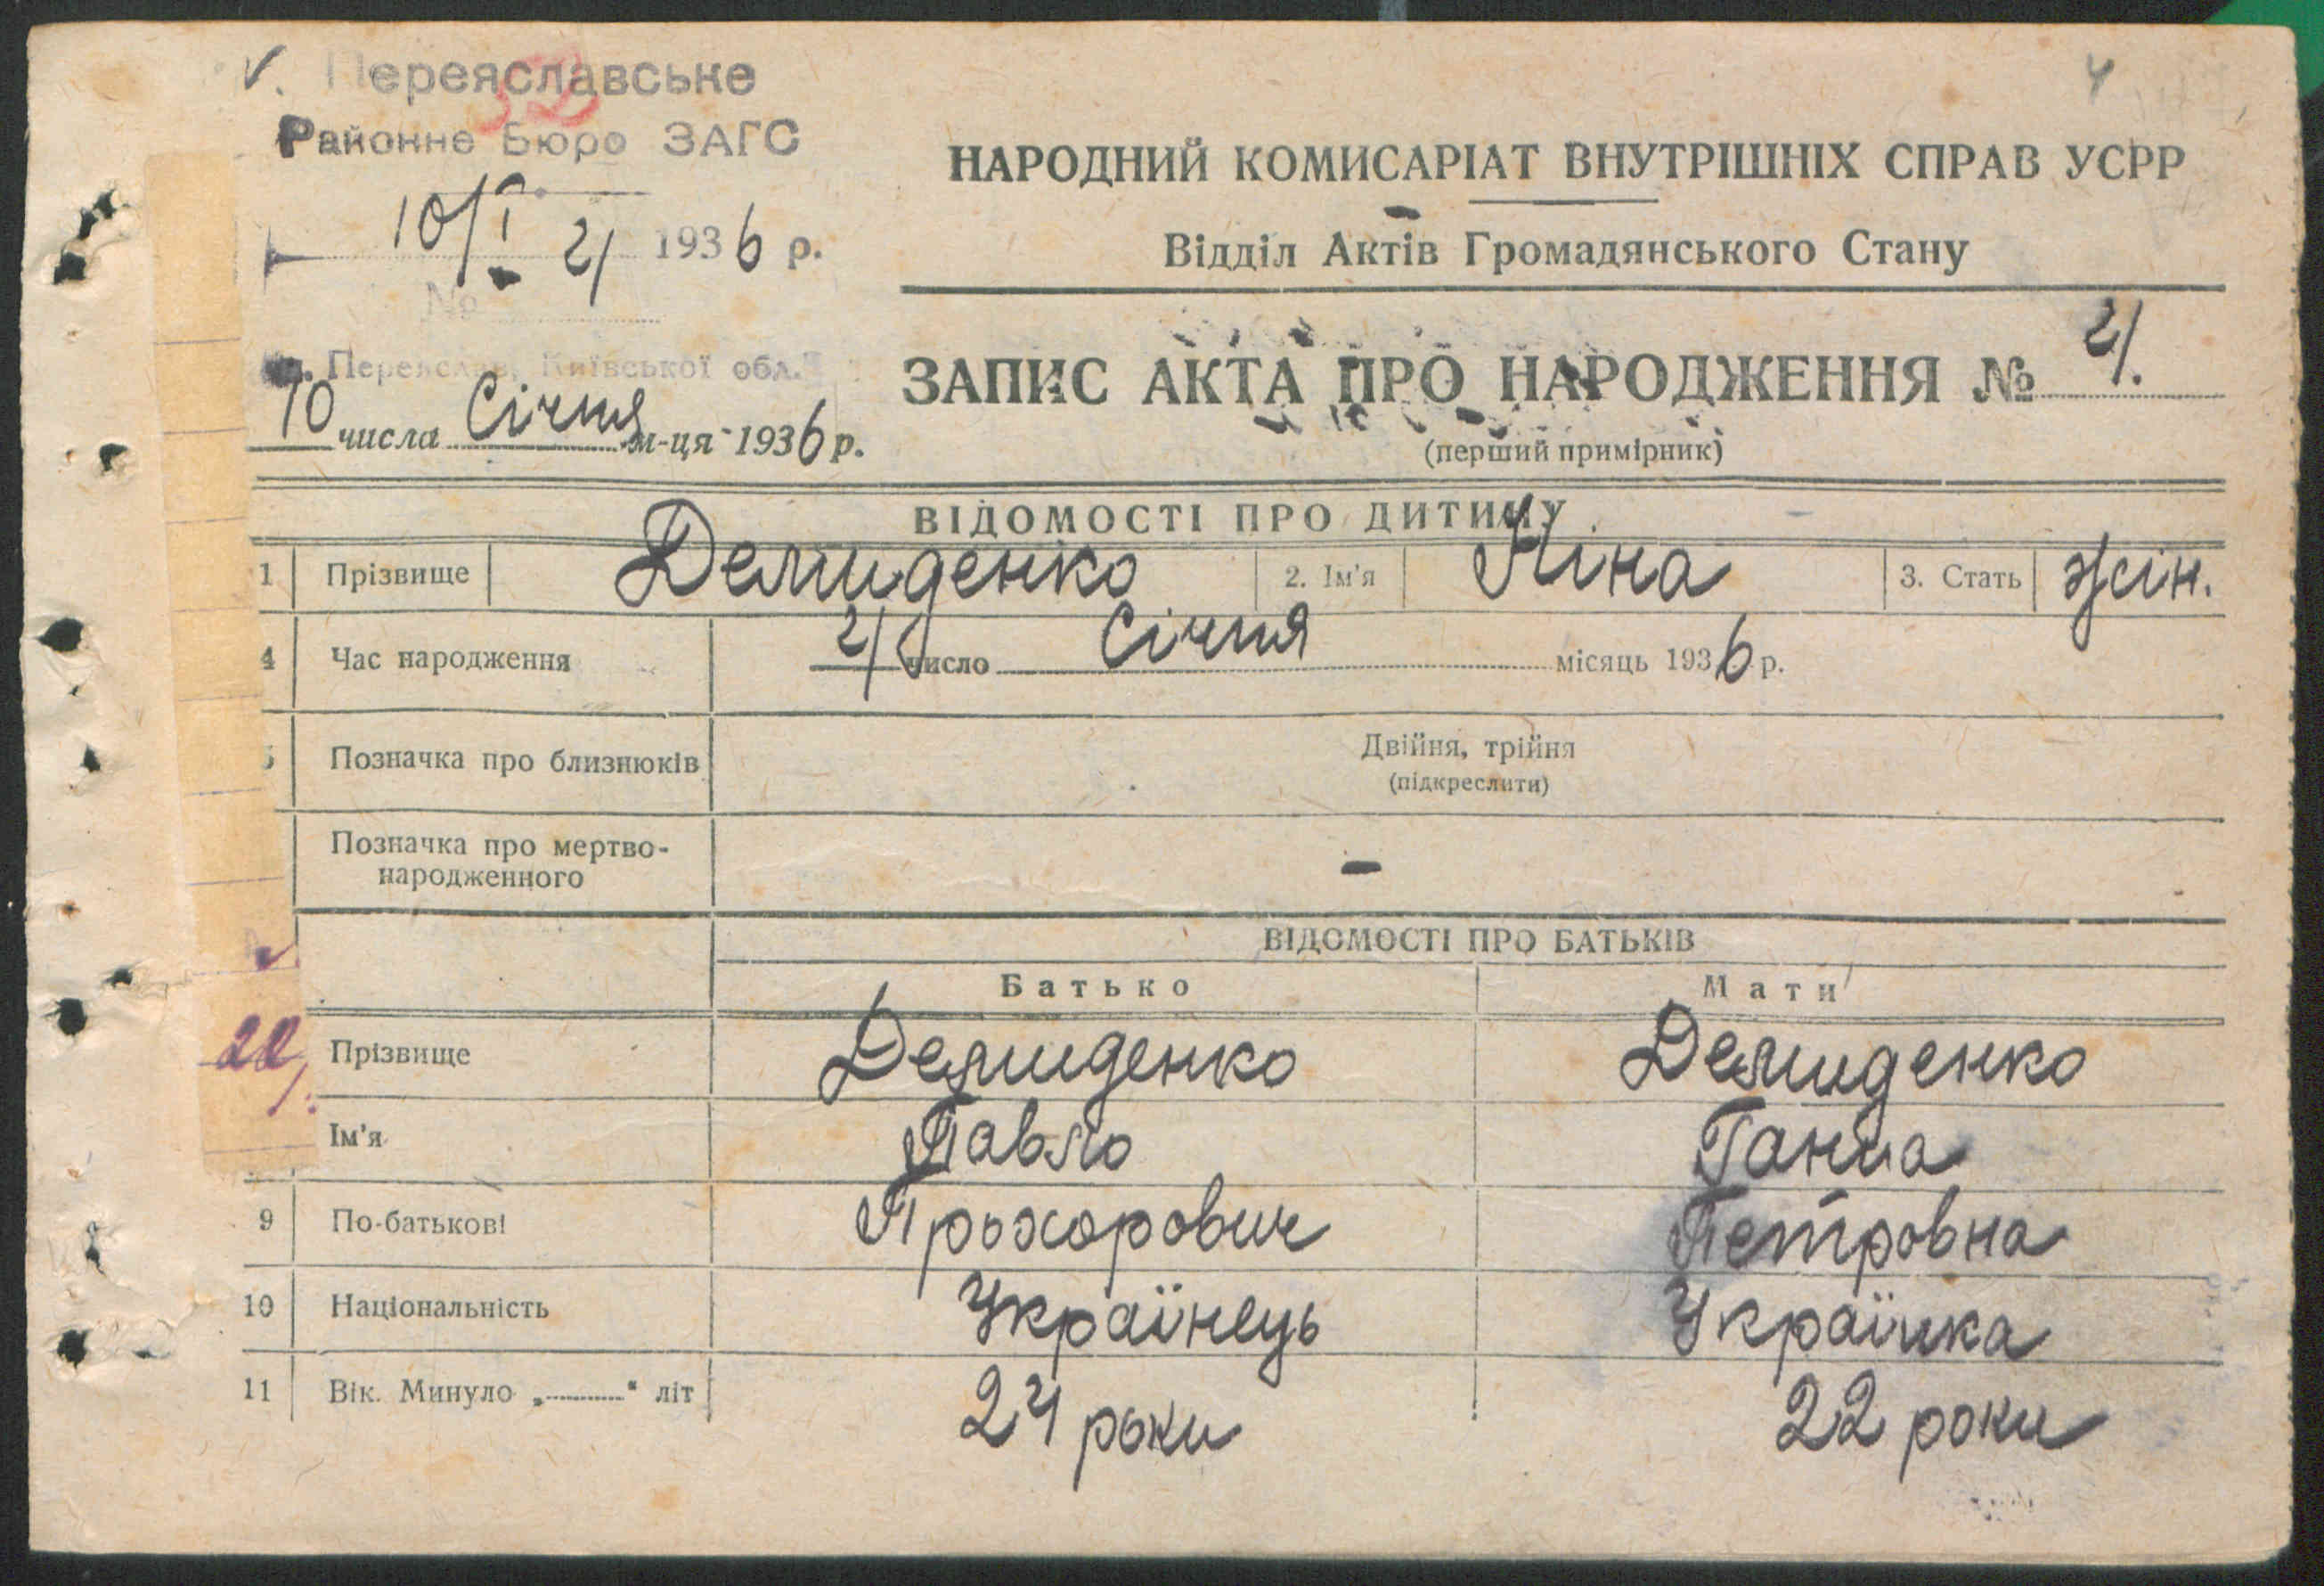 Переяславське
Районне Бюро ЗАГС
10/I 4 1936 р.
№
м. Переяслав, Київської обл.
10 числа Січня м-ця 1936 р.
4
НАРОДНИЙ КОМИСАРІАТ ВНУТРІШНІХ СПРАВ УСРР
Відділ Актів Громадянського Стану
ЗАПИС АКТА ПРО НАРОДЖЕННЯ № 4.
(перший примірник)
ВІДОМОСТІ ПРО ДИТИНУ
1 Прізвище Демиденко 2. Ім'я Ніна 3. Стать жін.
4 Час народження 4 число Січня місяць 1936 р.
5 Позначка про близнюків Двійня, трійня
(підкреслити)
Позначка про мертво-
народженного -
ВІДОМОСТІ ПРО БАТЬКІВ
Батько Мати
Прізвище Демиденко Демиденко
Ім'я Павло Ганна
9 По-батькові Прохорович Петровна
10 Національність Українець Українка
11 Вік. Минуло „-----“ літ 24 роки 22 роки